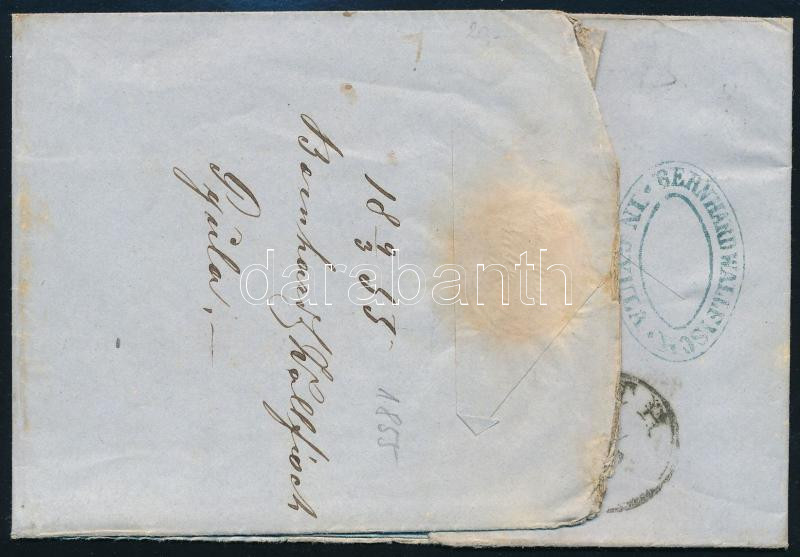 18 9/3 55
Bernhard Wallfisch
Gyula,
1855
BERNHARD WALLFISCH · IN GYULA ·
darabanth